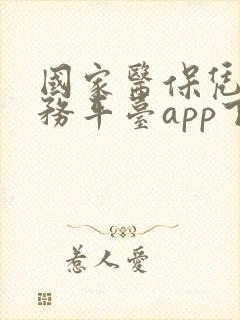 國家醫保凭
務平臺app下
惹人愛